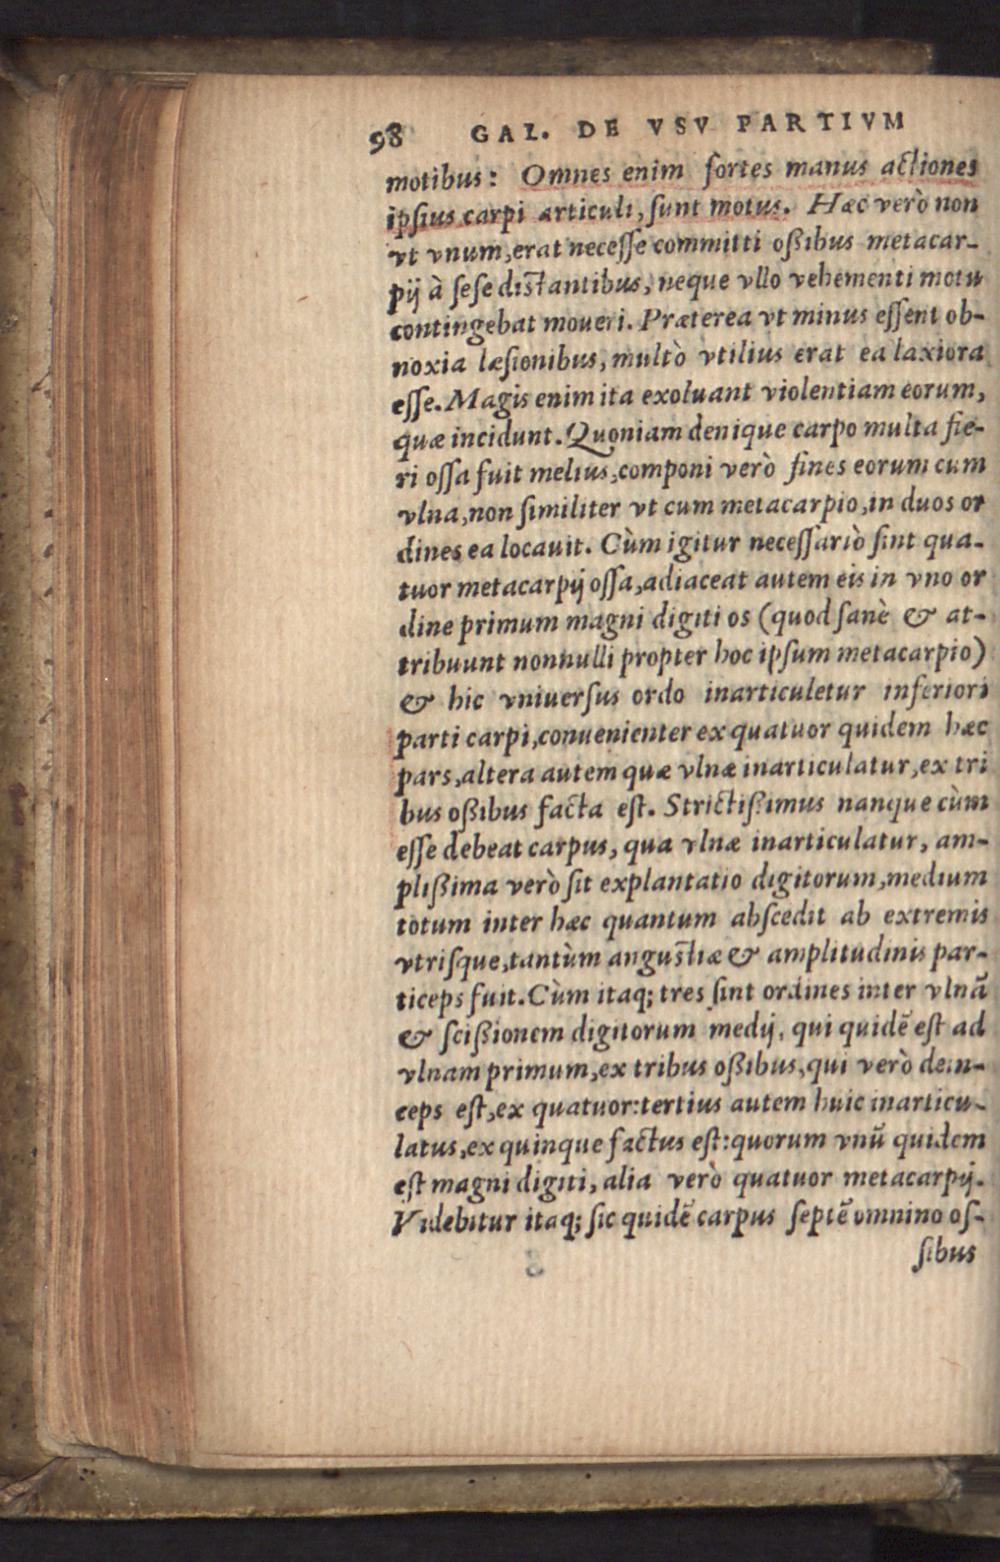 98 GAL. DE VSV PARTIVM
motibus: Omnes enim fortes manus actiones
ipsius carpi articuli, sunt motus. Hæc verò non
vt vnum, erat necesse committi oßibus metacar-
pij à sese distantibus, neque vllo vehementi motu
contingebat moueri. Præterea vt minus essent ob-
noxia læsionibus, multò vtilius erat ea laxiora
esse. Magis enim ita exoluant violentiam eorum,
quæ incidunt. Quoniam denique carpo multa fie-
ri ossa fuit melius, componi verò fines eorum cum
vlna, non similiter vt cum metacarpio, in duos or
dines ea locauit. Cùm igitur necessariò sint qua-
tuor metacarpij ossa, adiaceat autem eis in vno or
dine primum magni digiti os (quod sanè & at-
tribuunt nonnulli propter hoc ipsum metacarpio)
& hic vniuersus ordo inarticuletur inferiori
parti carpi, conuenienter ex quatuor quidem hæc
pars, altera autem quæ vlnæ inarticulatur, ex tri
bus oßibus facta est. Strictißimus nanque cùm
esse debeat carpus, qua vlnæ inarticulatur, am-
plißima verò sit explantatio digitorum, medium
totum inter hæc quantum abscedit ab extremis
vtrisque, tantùm angustiæ & amplitudinis par-
ticeps fuit. Cùm itaq; tres sint ordines inter vlnã
& scißionem digitorum medij, qui quidẽ est ad
vlnam primum, ex tribus oßibus, qui verò dein-
ceps est, ex quatuor: tertius autem huic inarticu-
latus, ex quinque factus est: quorum vnũ quidem
est magni digiti, alia verò quatuor metacarpij.
Videbitur itaq; sic quidẽ carpus septẽ omnino os-
sibus